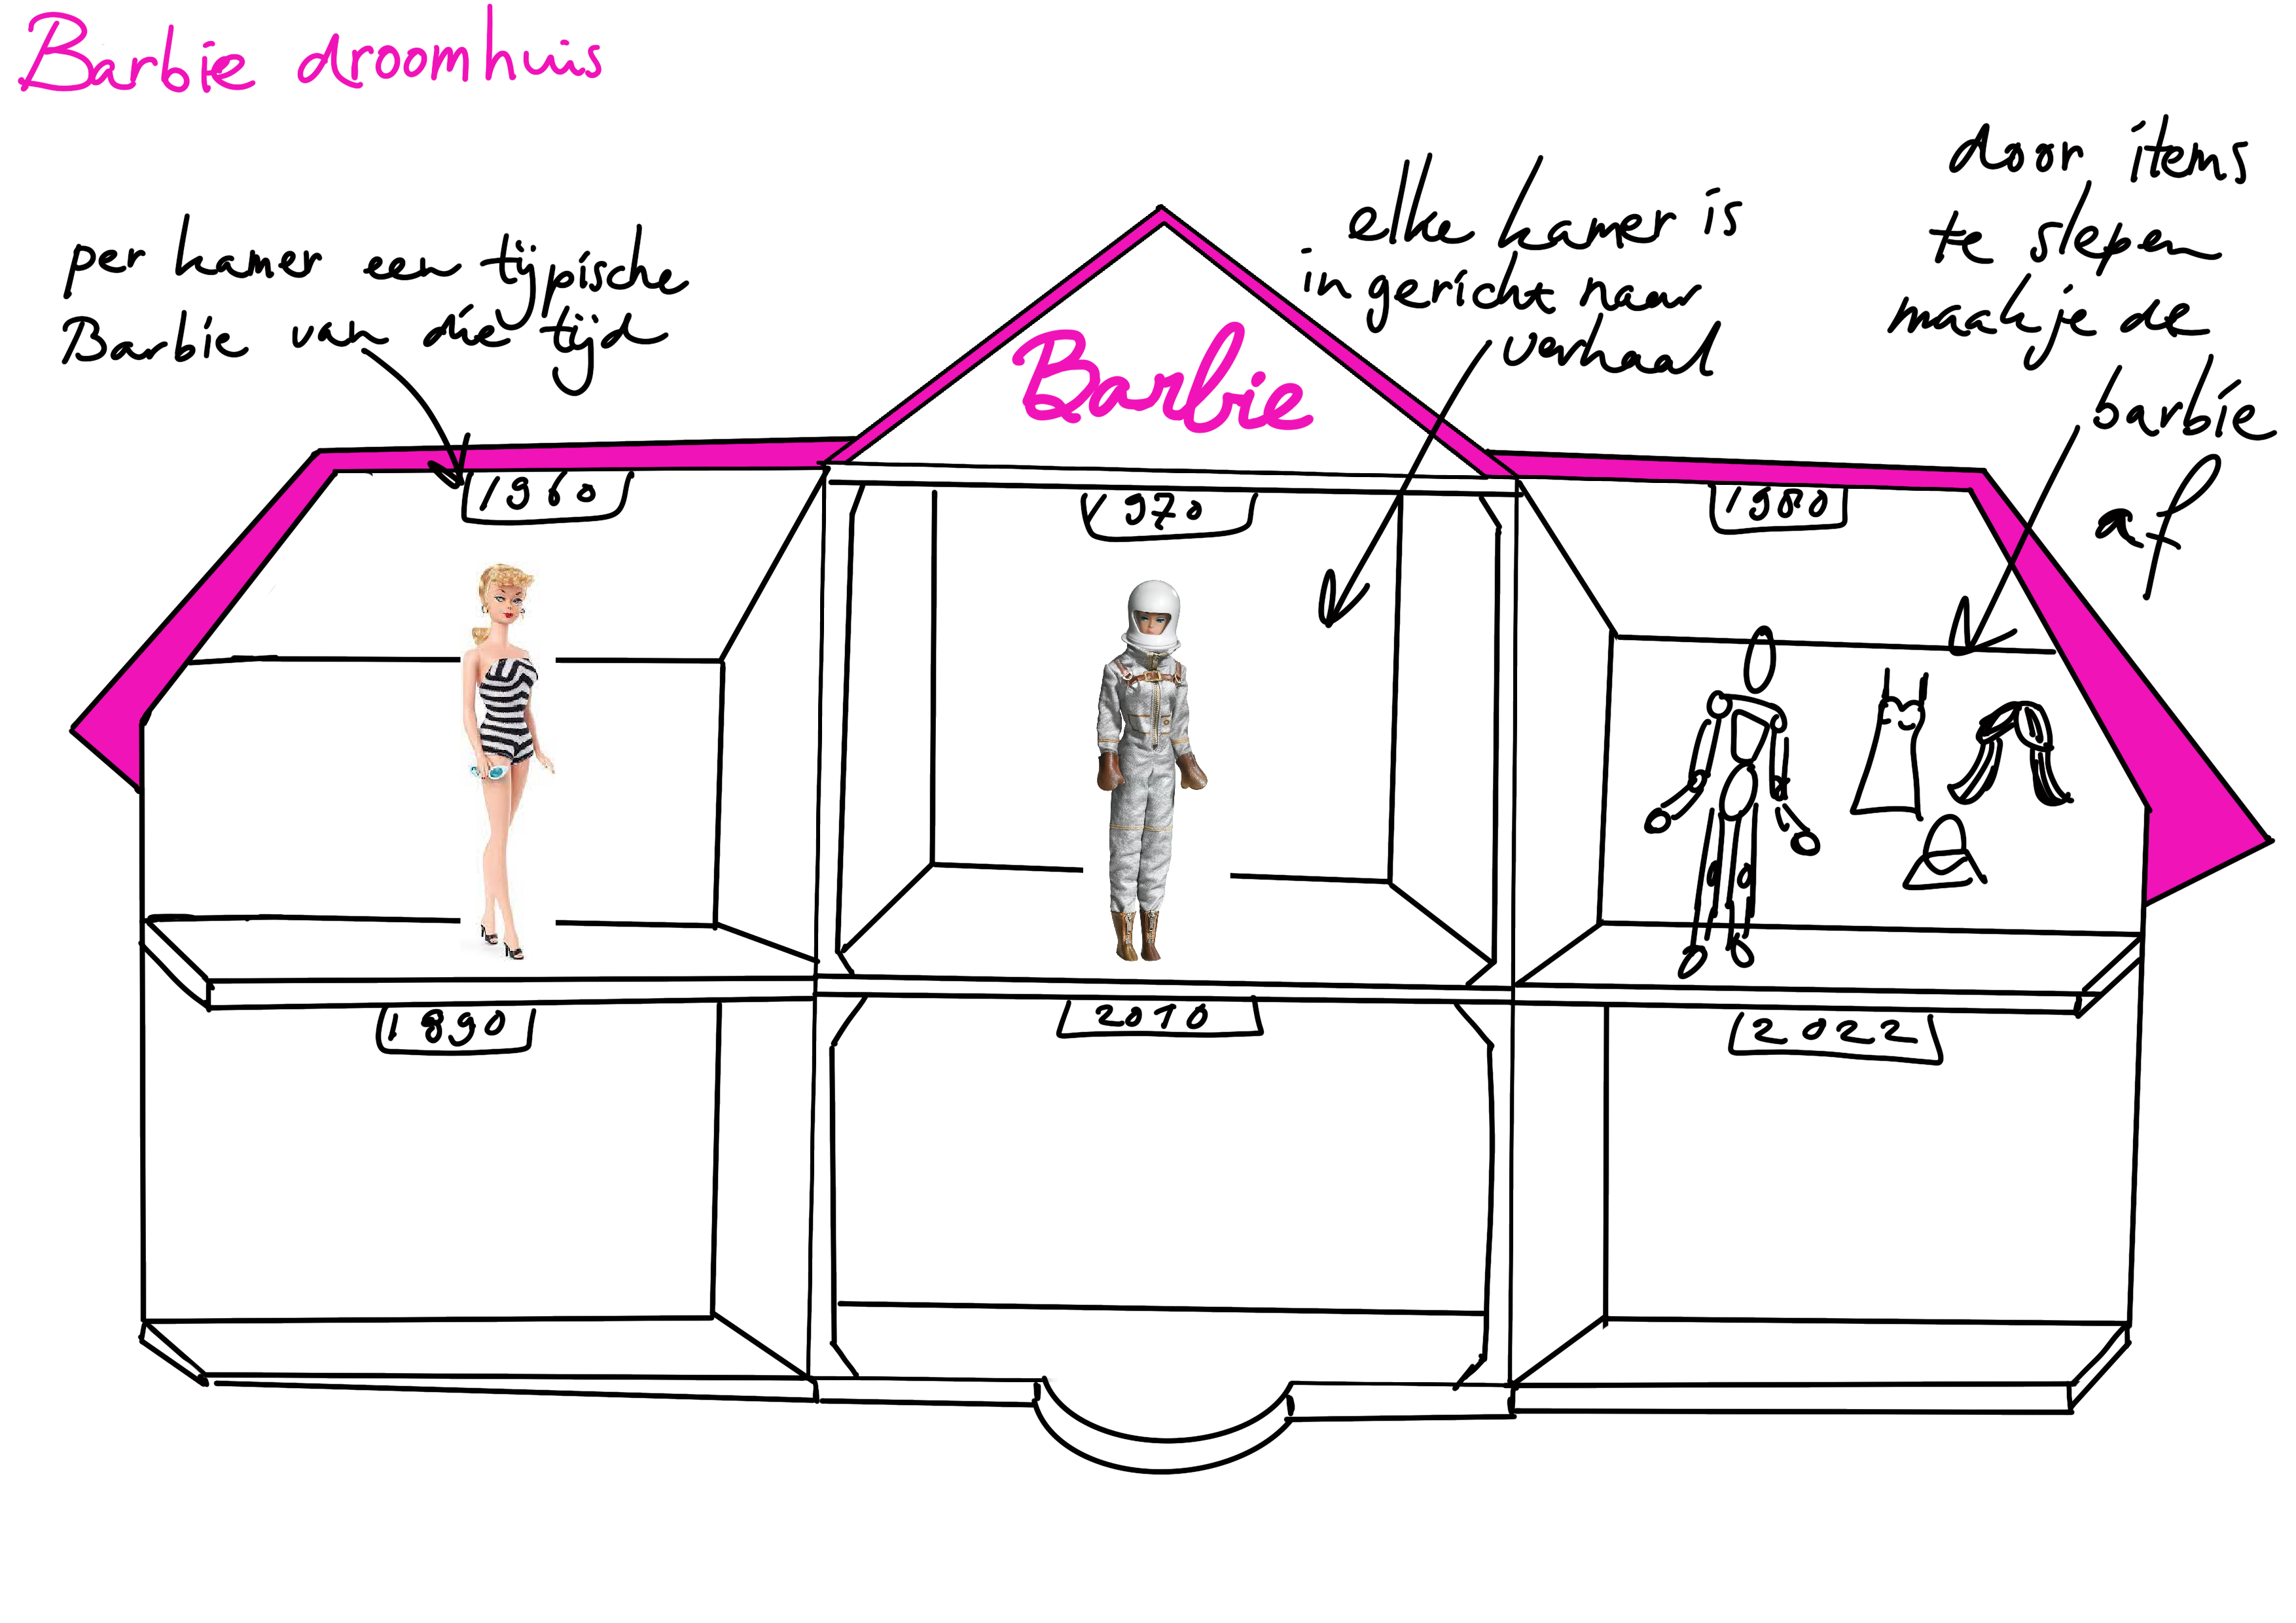 Barbie droomhuis
per kamer een typische
Barbie van die tijd
elke kamer is
ingericht naar
verhaal
door items
te slepen
maak je de
barbie
af
Barbie
1960
1970
1980
1890
2010
2022